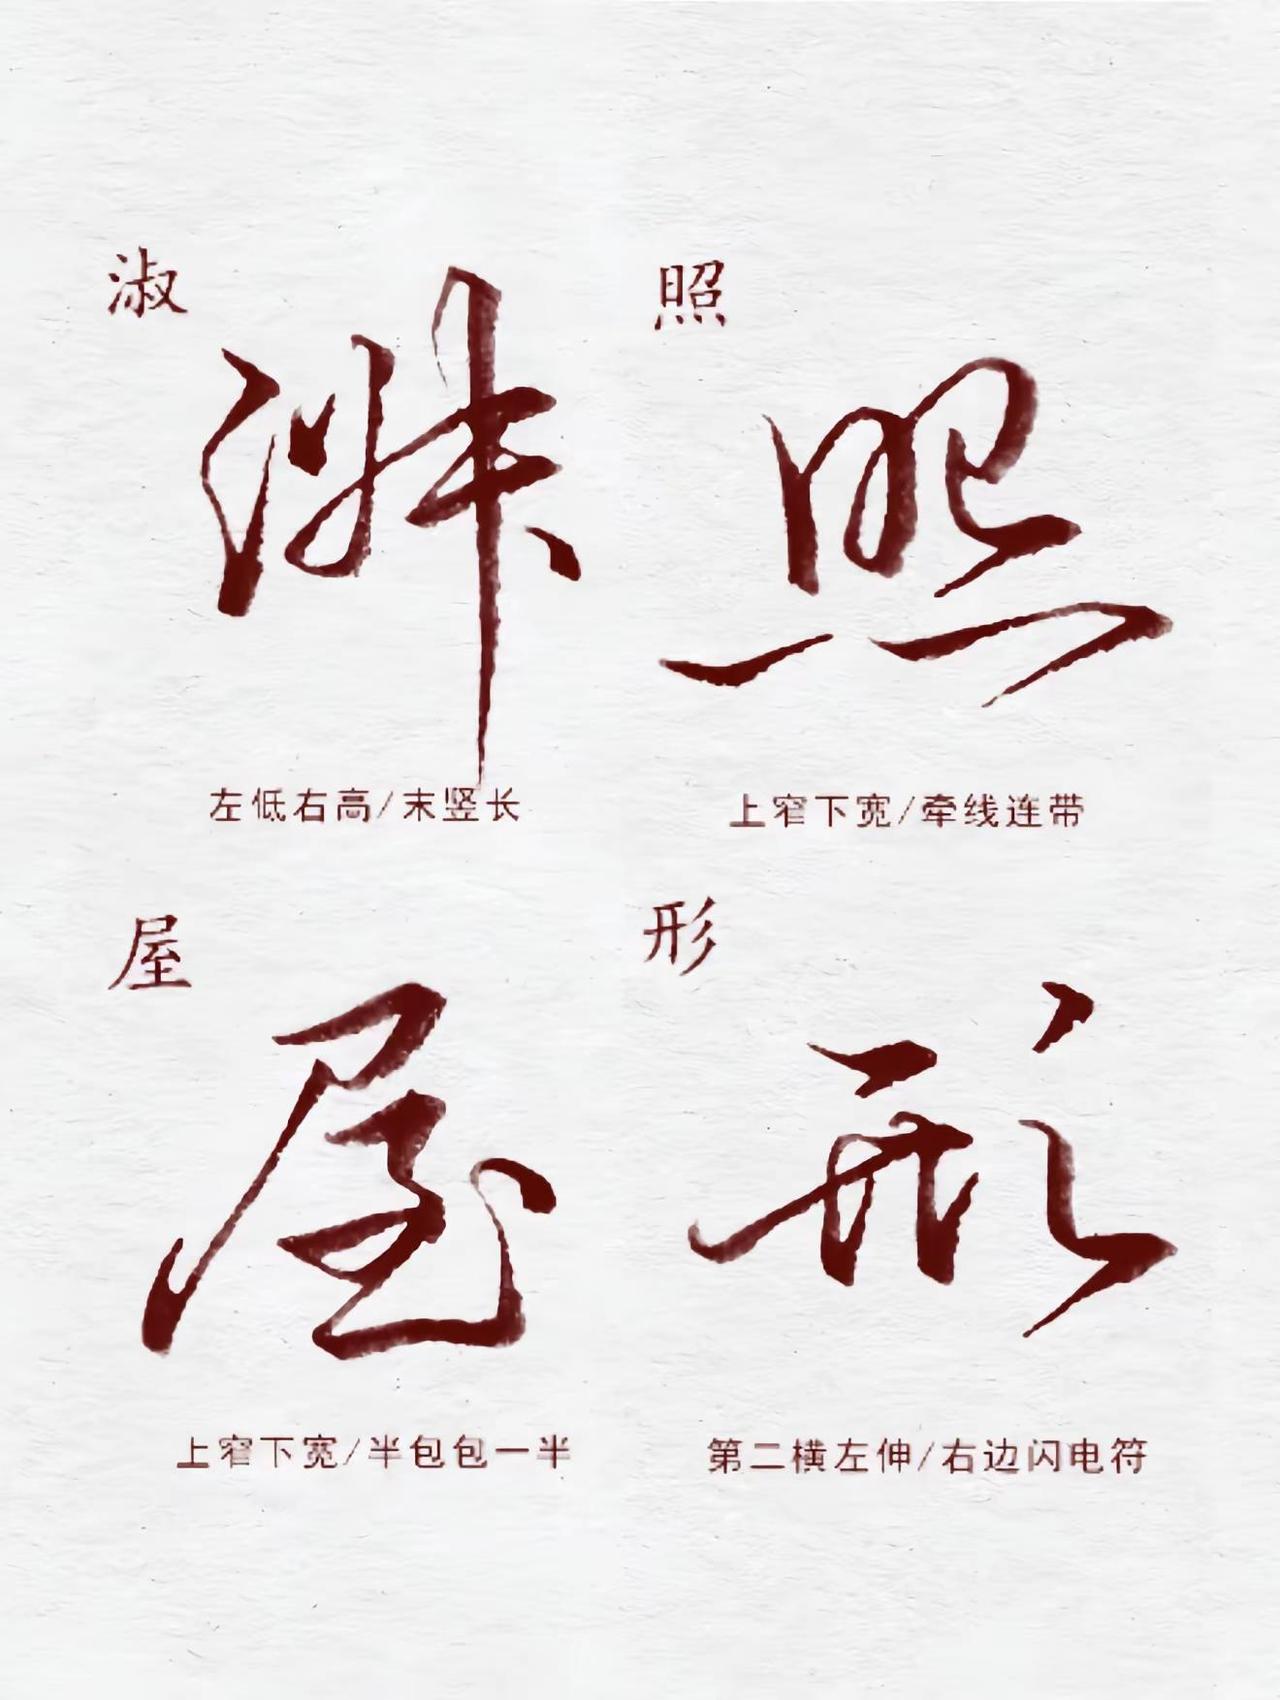 淑
淑
左低右高/末竖长
照
照
上窄下宽/牵线连带
屋
屋
上窄下宽/半包包一半
形
形
第二横左伸/右边闪电符